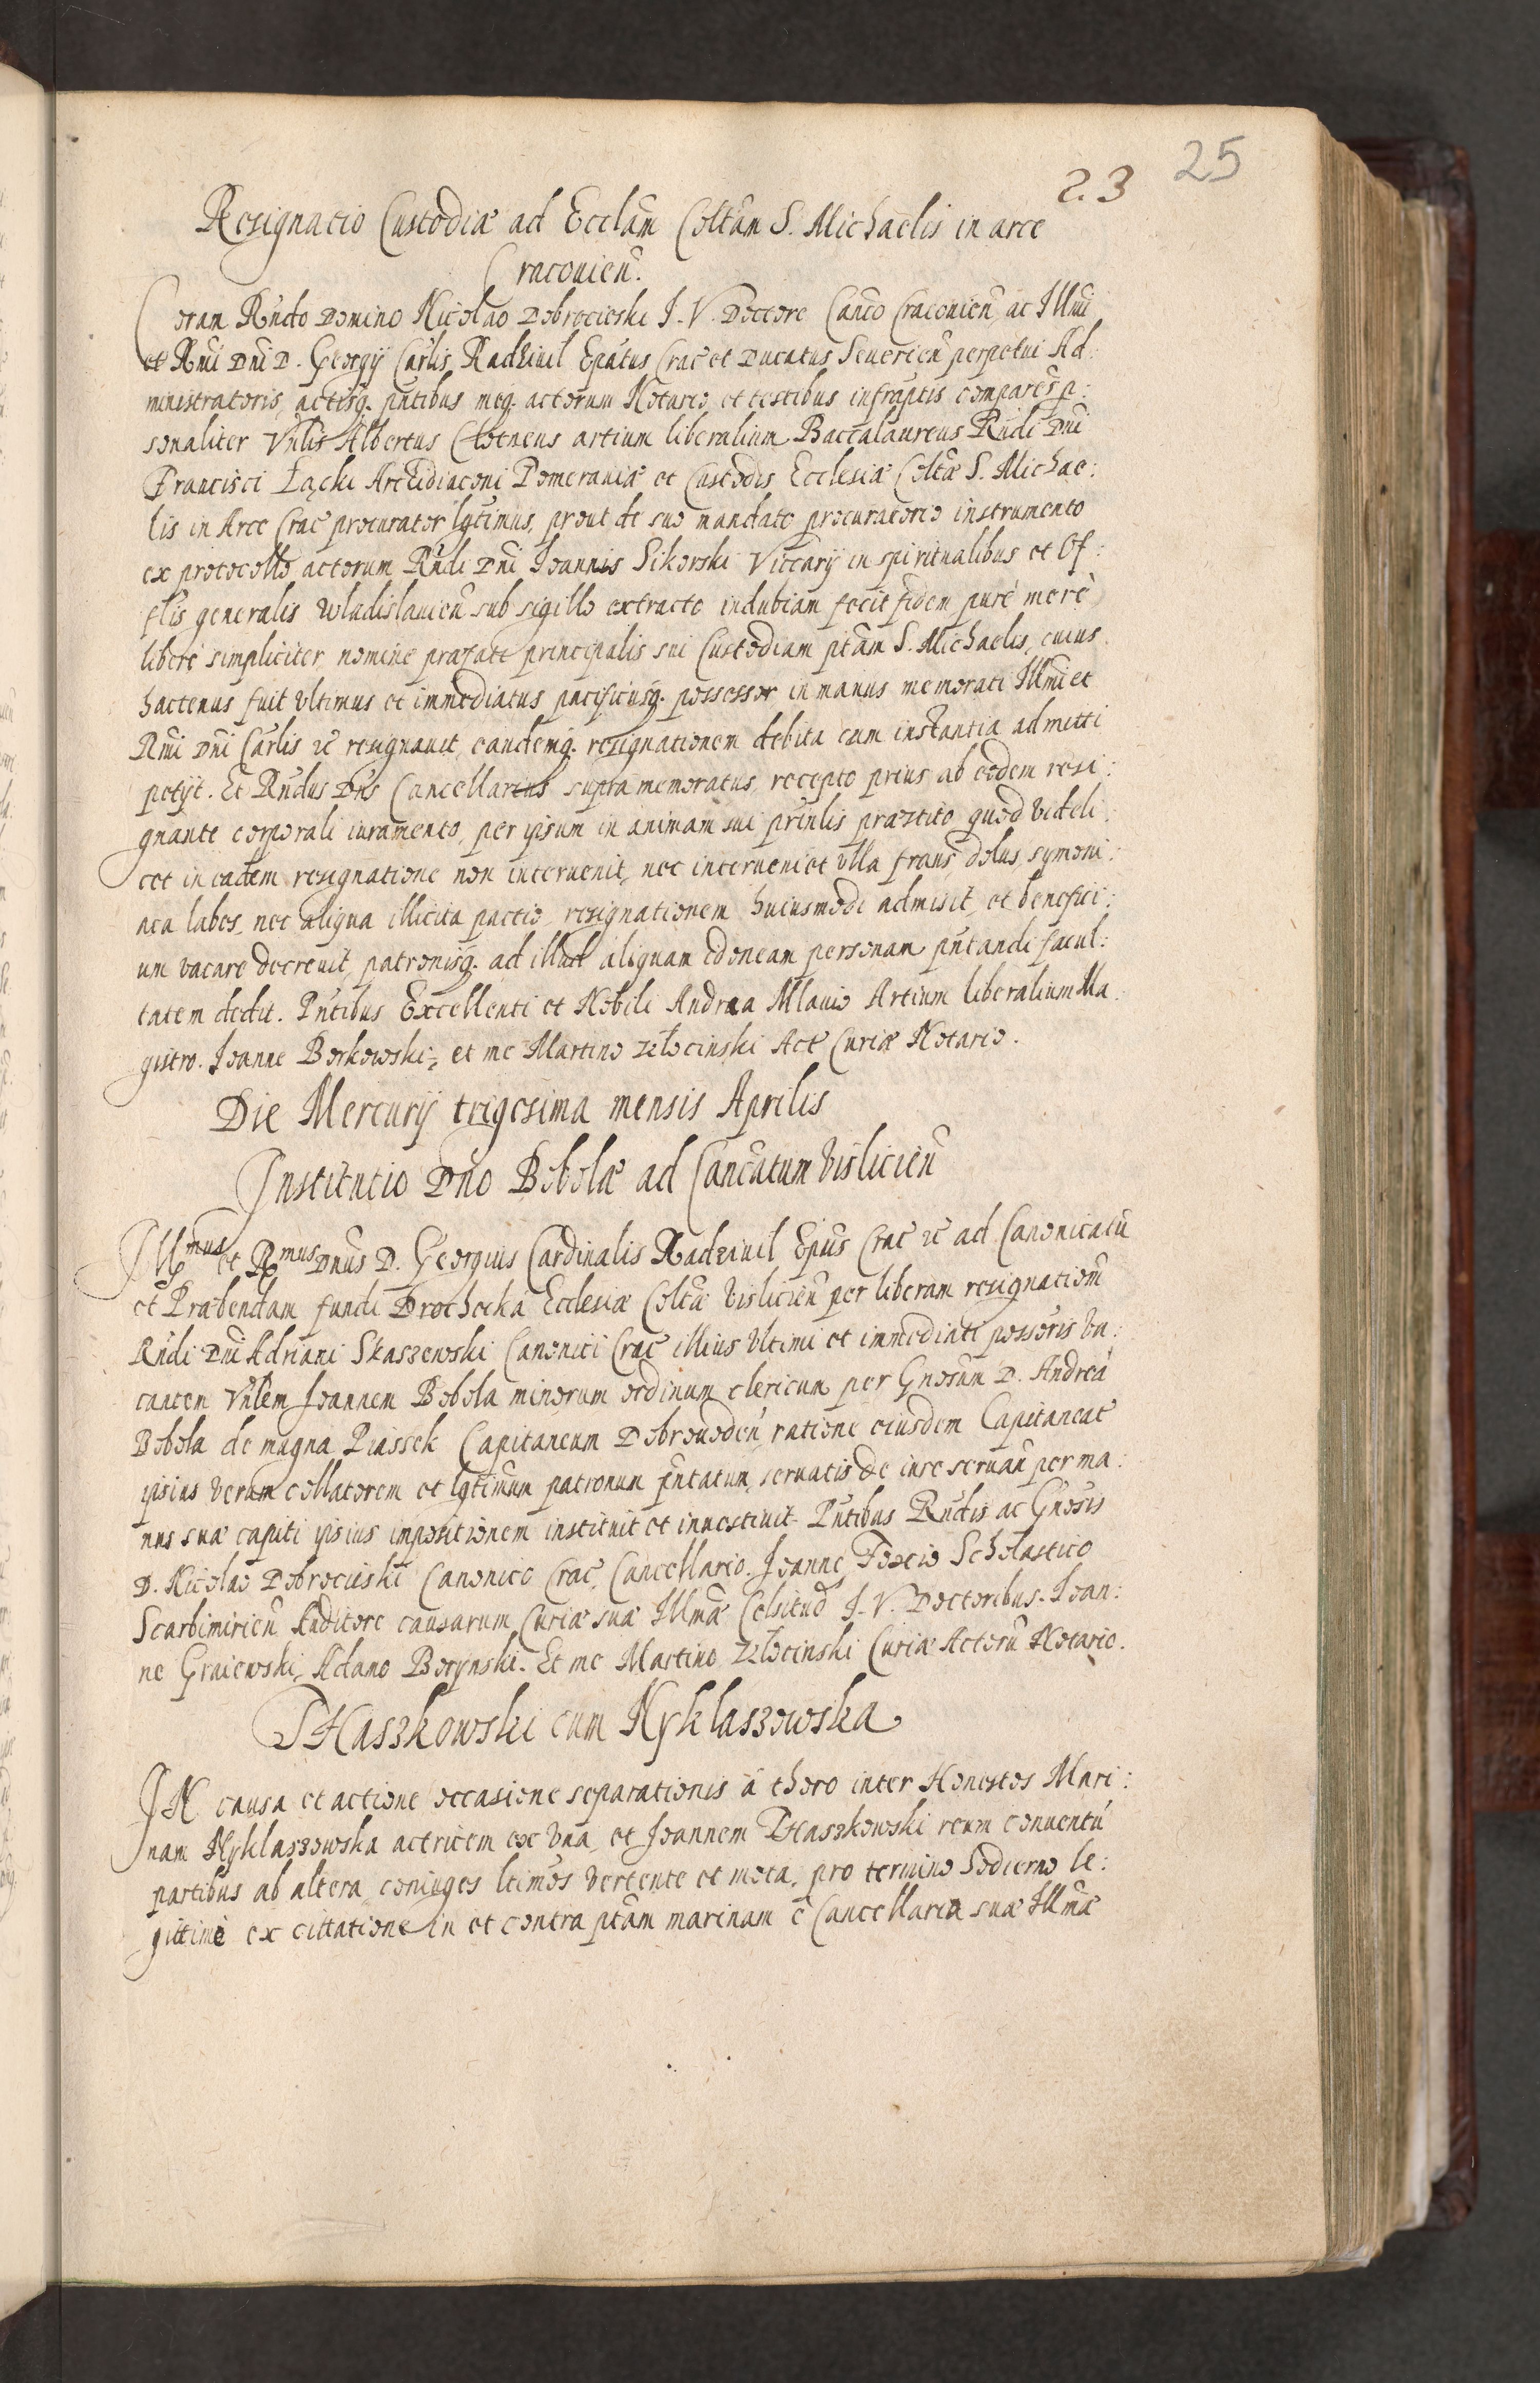 25
23
Resignatio Custodiæ ad Ecclãm Colltãm S. Michaelis in arce
Cracouien̄.
Coram Rn̄do Domino Nicolao Dobrocieski I. V. Doctore Canco Cracouien̄ ac Illmi
et Rmi Dni D. Georgij Carlis Radziuil Epãtus Crac̄ et Ducatus Seuerien̄ perpetui Ad:
ministratoris, actisq. pn̄tibus meq. actorum Notario et testibus infraptis comparens p:
sonaliter Vnlis Albertus artium liberalium Baccalaureus Rndi Dni
Francisci Łącki Archidiaconi Pomeraniæ et Custodis Ecclesiæ Coltæ S. Michae:
lis in Arce Crac̄ procurator lgtimus, prout de suo mandato procuratorio instrumento
ex protocollo actorum Rndi Dni Ioannis Sikorski Viccarij in spiritualibus et Of:
flis generalis Wladislauien̄ sub sigillo extracto indubiam fecit fidem purè merè
liberè simpliciter, nomine præfati principalis sui Custodiam ptãm S. Michaelis, cuius
hactenus fuit vltimus et immediatus pacificusq. possessor in manus memorati Illmi et
Rmi Dni Carlis &c resignauit, eandemq. resignationem debita cum instantia admitti
petijt. Et Rndus Dns Cancellarius supra memoratus, recepto prius ab eodem resi:
gnante corporali iuramento, per ipsum in animam sui prinlis præstito, quod videli:
cet in eadem resignatione non interuenit, nec interueniet vlla fraus, dolus, symoni:
aca labes, nec aliqua illicita pactio, resignationem huiusmodi admisit, et benefici:
um vacare decreuit, patronisq. ad illud aliquam idoneam personam pn̄tandi facul:
tatem dedit. Pn̄tibus Excellenti et Nobili Andræa Mlauio Artium liberalium Ma:
gistro. Ioanne Borkowski, et me Martino Złocinski Act Curiæ Notario.
Die Mercurij trigesima mensis Aprilis
Institutio Dno Bobolæ ad Cancatum Vislicien̄
Illmus et Rmus Dnus D. Georgius Cardinalis Radziuil Epus Crac̄ &c ad Canonicatū
et Præbendam fundi Drochocka Ecclesiæ Coltæ Vislicien̄ per liberam resignatiom̄
Rndi Dni Adriani Skaszewski Canonici Crac̄ illius vltimi et immediati possoris va:
cantem Vnlem Ioannem Bobola minorum ordinum clericum per Gnosum D. Andreā
Bobola de magna Piassek Capitaneum Dobrouoden̄ ratione eiusdem Capitaneat̄
ipsius verum collatorem et lgtimum patronum pn̄tatum, seruatis de iure seruan̄ per ma:
nus suæ capiti ipsius impositionem instituit et inuestiuit. Pn̄tibus Rndis ac Gnosis
D. Nicolao Dobrocieski Canonico Crac̄ Cancellario. Ioanne Foxio Scholastico
Scarbimirien̄ Auditore causarum Curiæ suæ Illmæ Celsitud̄ I. V. Doctoribus. Ioan:
ne Graiewski, Adamo Boczynski. Et me Martino Złocinski Curiæ Actorū Notario.
PHaszkowski cum Nyklaszowska
IN causa et actione occasione separationis à thoro inter Honestos Mari:
nam Nyklaszowska actricem ex vna, et Ioannem PHaszkowski reum conuentū
partibus ab altera, coniuges ltimos vertente et mota, pro termino hodierno le:
gittimè ex cittatione in et contra ptãm marinam è Cancellaria suæ Illmæ